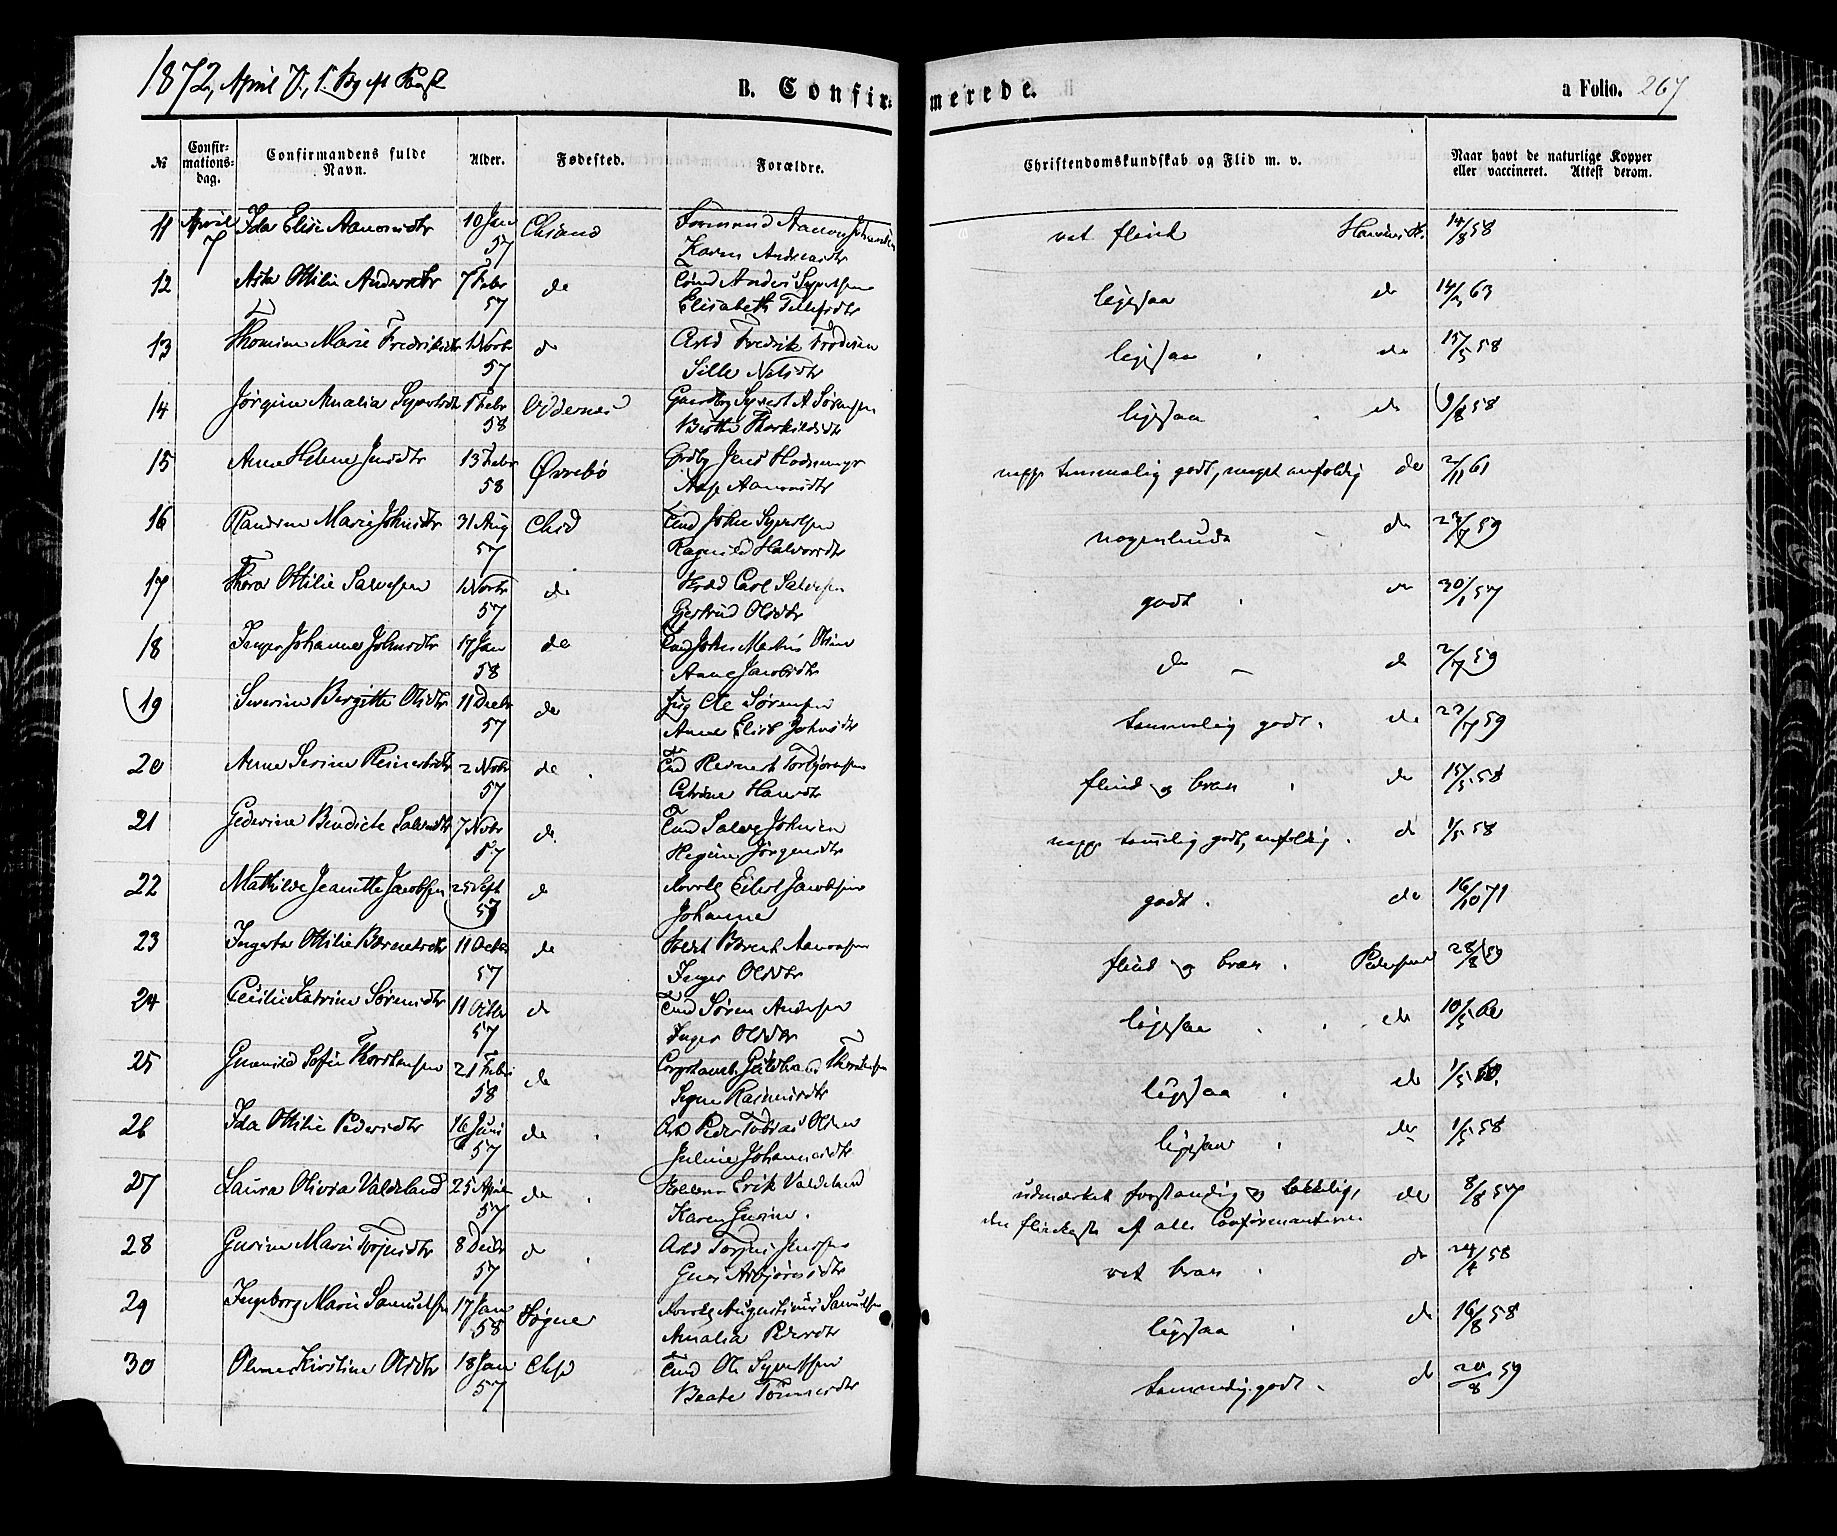 1872, April 7, 1. Sg eft Paaske
B. Confirmerede. a Folio. 267
№ Confirmationsdag. Confirmandens fulde Navn. Alder. Fødested. Forældre. Christendomskundskab og Flid m. v. Naar havt de naturlige Kopper eller vaccineret. Attest derom.
11 April 7 Ida Elise Aanonsdtr 10 Jan 57 Chsand Aanon Johnsen vet flink 14/8 58
Karen Andreasdtr
12 Asta Ottilie Andersdtr 7 Febr 57 do Anders Syvertsen ligesaa do 63
Elisabeth Tellefsdtr
13 Thomine Marie Fredriksdtr 1 Novbr 57 do Arbd Fredrik ligesaa do 15/5 58
Sille Nelsdtr
14 Jørgine Amalia Syvertsdtr 1 Febr 58 Oddernes Syvert A Sørensen ligesaa do 9/8 58
Berthe Thorkildsdtr
15 Anne Helene Jensdtr 13 Febr 58 Øvrebø Jens nepp temmelig godt, meget enfoldig do 2/11 61
Aase Aanonsdtr
16 Randine Marie Johnsdtr 31 Aug 57 Chsd Tmd John Syvertsen nogenlunde do 23/7 59
Ragnild Halvorsdtr
17 Thora Ottilie Salvesen 1 Novbr 57 do Carl Salvesen godt do 30/1 57
Gjertrud Olsdtr
18 Inger Johanne Johnsdtr 17 Jan 58 do Tmd John Martin Olsen do do 2/7 59
Anne Jacobsdtr
19 Severine Birgitte Olsdtr 11 Decbr 57 do Ole Sørensen temmelig godt. do 27/7 59
Anne Elisb Johnsdtr
20 Anne Serine Reinertsdtr 2 Novbr 57 do Tmd Reinert Torbjørnsen flink og brav do 15/5 58
Catrine Hansdtr
21 Gederine Bendicte Salvesdtr 7 Novbr 57 do Tmd Salve Johnsen nepp temmelig godt, enfoldig. do 1/5 58
Regine Jørgensdtr
22 Mathilde Jeanette Jacobsen 25 Sept 57 do Eilert Jacobsen godt. do 16/10 71
Johanne
23 Ottilie Berentsdtr 11 Octbr 57 do Berent Aanonsen flink og brav. Pedersen 28/8 59
Inger Olsdtr
24 Cecilie Katrine Sørensdtr 11 Octbr 57 do Tmd Søren Andersen ligesaa do 10/5 60
Inger Olsdtr
25 Gunnild Sofie Thorstensen 21 Febr 58 do Thorstensen ligesaa do 1/5 60.
Signe Rasmusdtr
26 Ida Ottilie Pedersdtr 16 Juni 57 do Arb Peder Tobias Olsen ligesaa do 1/5 58
Juline Johannesdtr
27 Laura Olivia Valdeland 25 April 57 do Erik Valdeland udmærket forstandig og tækkelig, do 8/8 57
Karen Gurine. den flinkeste af alle Confirmanterne
28 Gurine Marie Torjusdtr 8 Decbr 57 do Arbd Torjus Jensen vet brav do 24/4 58
Guri Asbjørnsdtr
29 Ingeborg Marie Samuelsen 17 Jan 58 Søgne Augustinus Samuelsen ligesaa do 16/8 58
Amalia Pedersdtr
30 Olene Kirstine Olsdtr 18 Jan 57 Chsd Tmd Ole Syvertsen temmelig godt. do 20/8 59
Beate Tønnesdtr